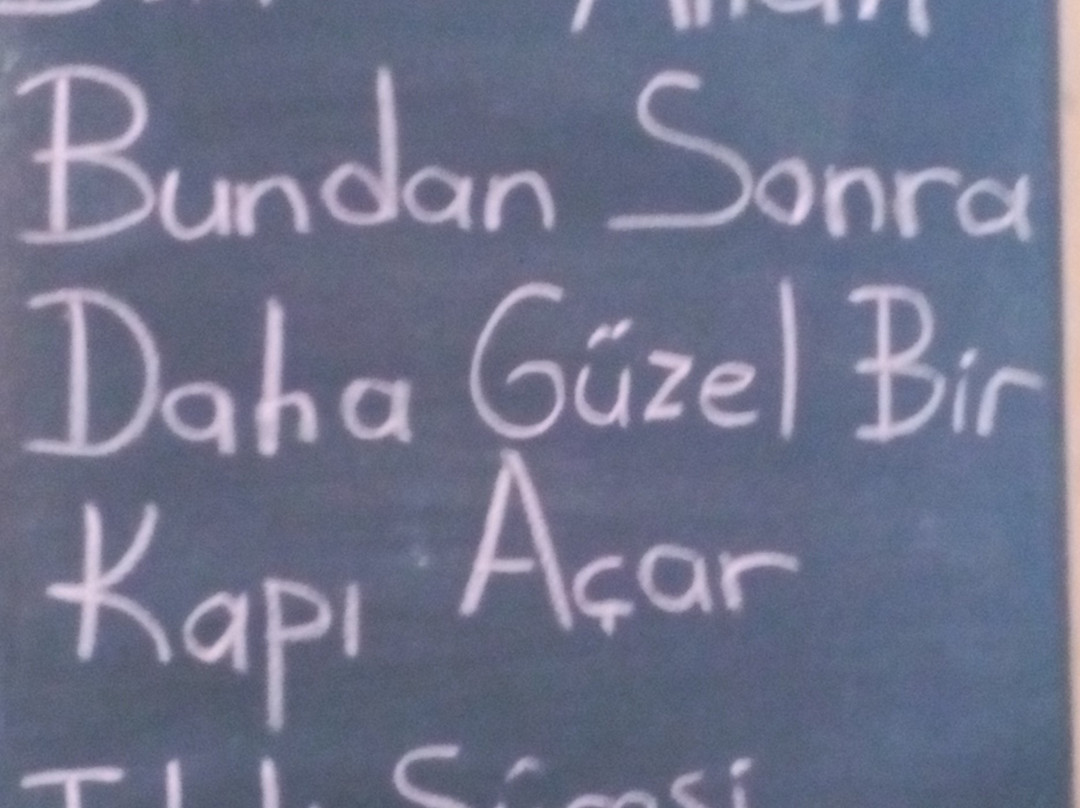 Bundan Sonra
Daha Güzel Bir
Kapı Açar